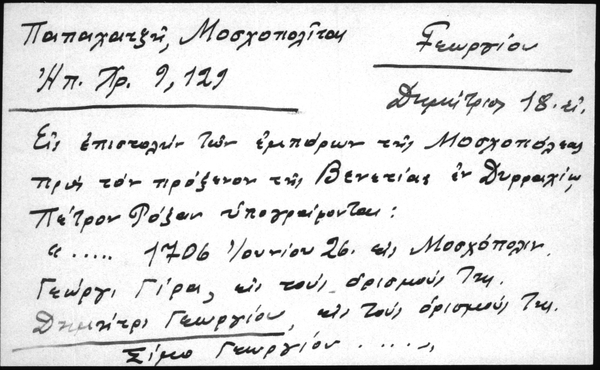 Παπαχατζῆ, Μοσχοπολῖται
Γεωργίου
Ἠπ. Χρ. 9, 129
Δημήτριος 18. αἰ.
Εἰς ἐπιστολὴν τῶν ἐμπόρων τῆς Μοσχοπόλεως
πρὸς τὸν πρόξενον τῆς Βενετίας ἐν Δυρραχίῳ
Πέτρον Ρόζαν ὑπογράφονται:
« ..... 1706 Ἰουνίου 26. εἰς Μοσχόπολιν.
Γεώργι Γίρα, εἰς τοὺς ὁρισμούς της.
Δημήτρι Γεωργίου, εἰς τοὺς ὁρισμούς της.
Σίμο Γεωργίου .....»